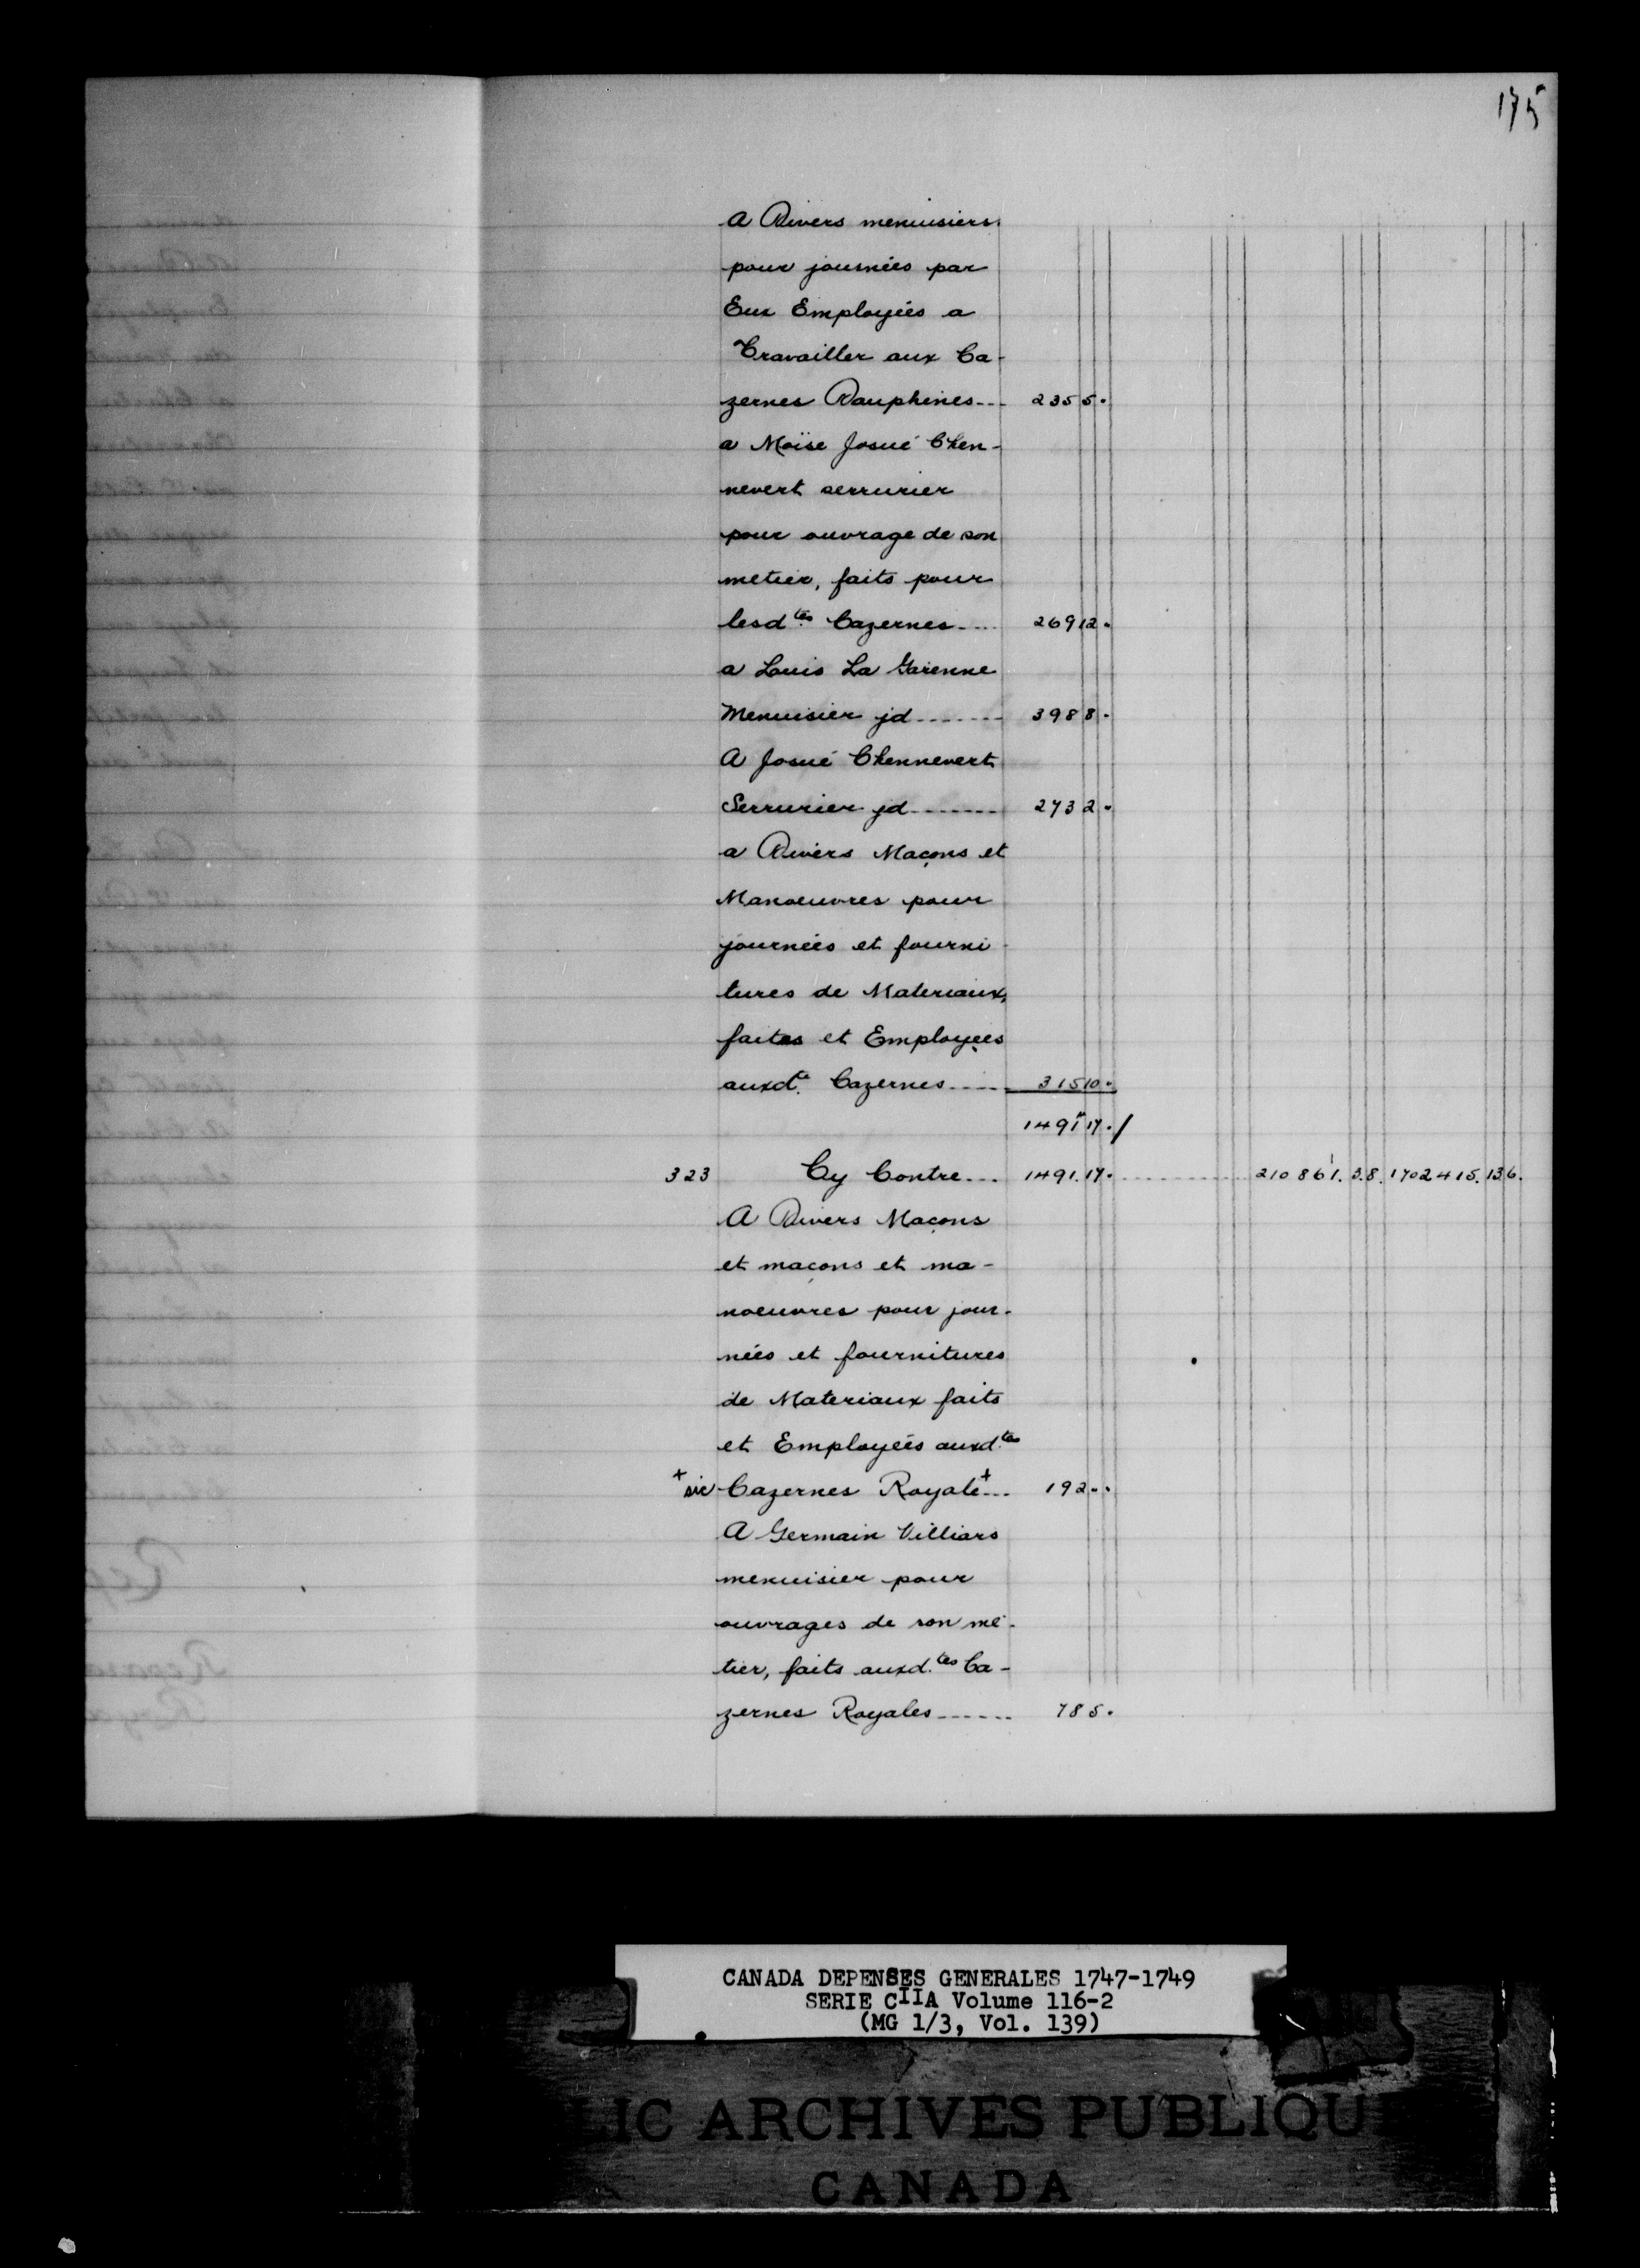 175
A Divers menuisiers
pour journées par
Eux Employées a
Travailler aux Ca-
zernes Dauphines... 235 5.
a Moïse Josué Chen-
nevert serrurier
pour ouvrage de son
metier, faits pour
lesd.tes Cazernes.... 269 12.
a Louis La Garenne
Menuisier jd....... 398 8.
A Josué Chennevert
Serrurier jd........ 273 2.
a Divers Maçons et
Manoeuvres pour
journées et fourni-
tures de Materiaux,
faites et Employees
auxd.te Cazernes..... 315 10.
1491 17./
323 Cy Contre... 1491.17. ............ 210 861. 3.8. 1702415.13 6.
A Divers Maçons
et maçons et ma-
noeuvres pour jour-
nées et fournitures
de Materiaux faits
et Employées auxd.tes
+sic Cazernes Royale+... 192..
A Germain Villiars
menuisier pour
ouvrages de son mé-
tier, faits auxd.tes Ca-
zernes Royales...... 785.
CANADA DEPENSES GENERALES 1747-1749
SERIE CIIA Volume 116-2
(MG 1/3, Vol. 139)
LIC ARCHIVES PUBLIQU
CANADA